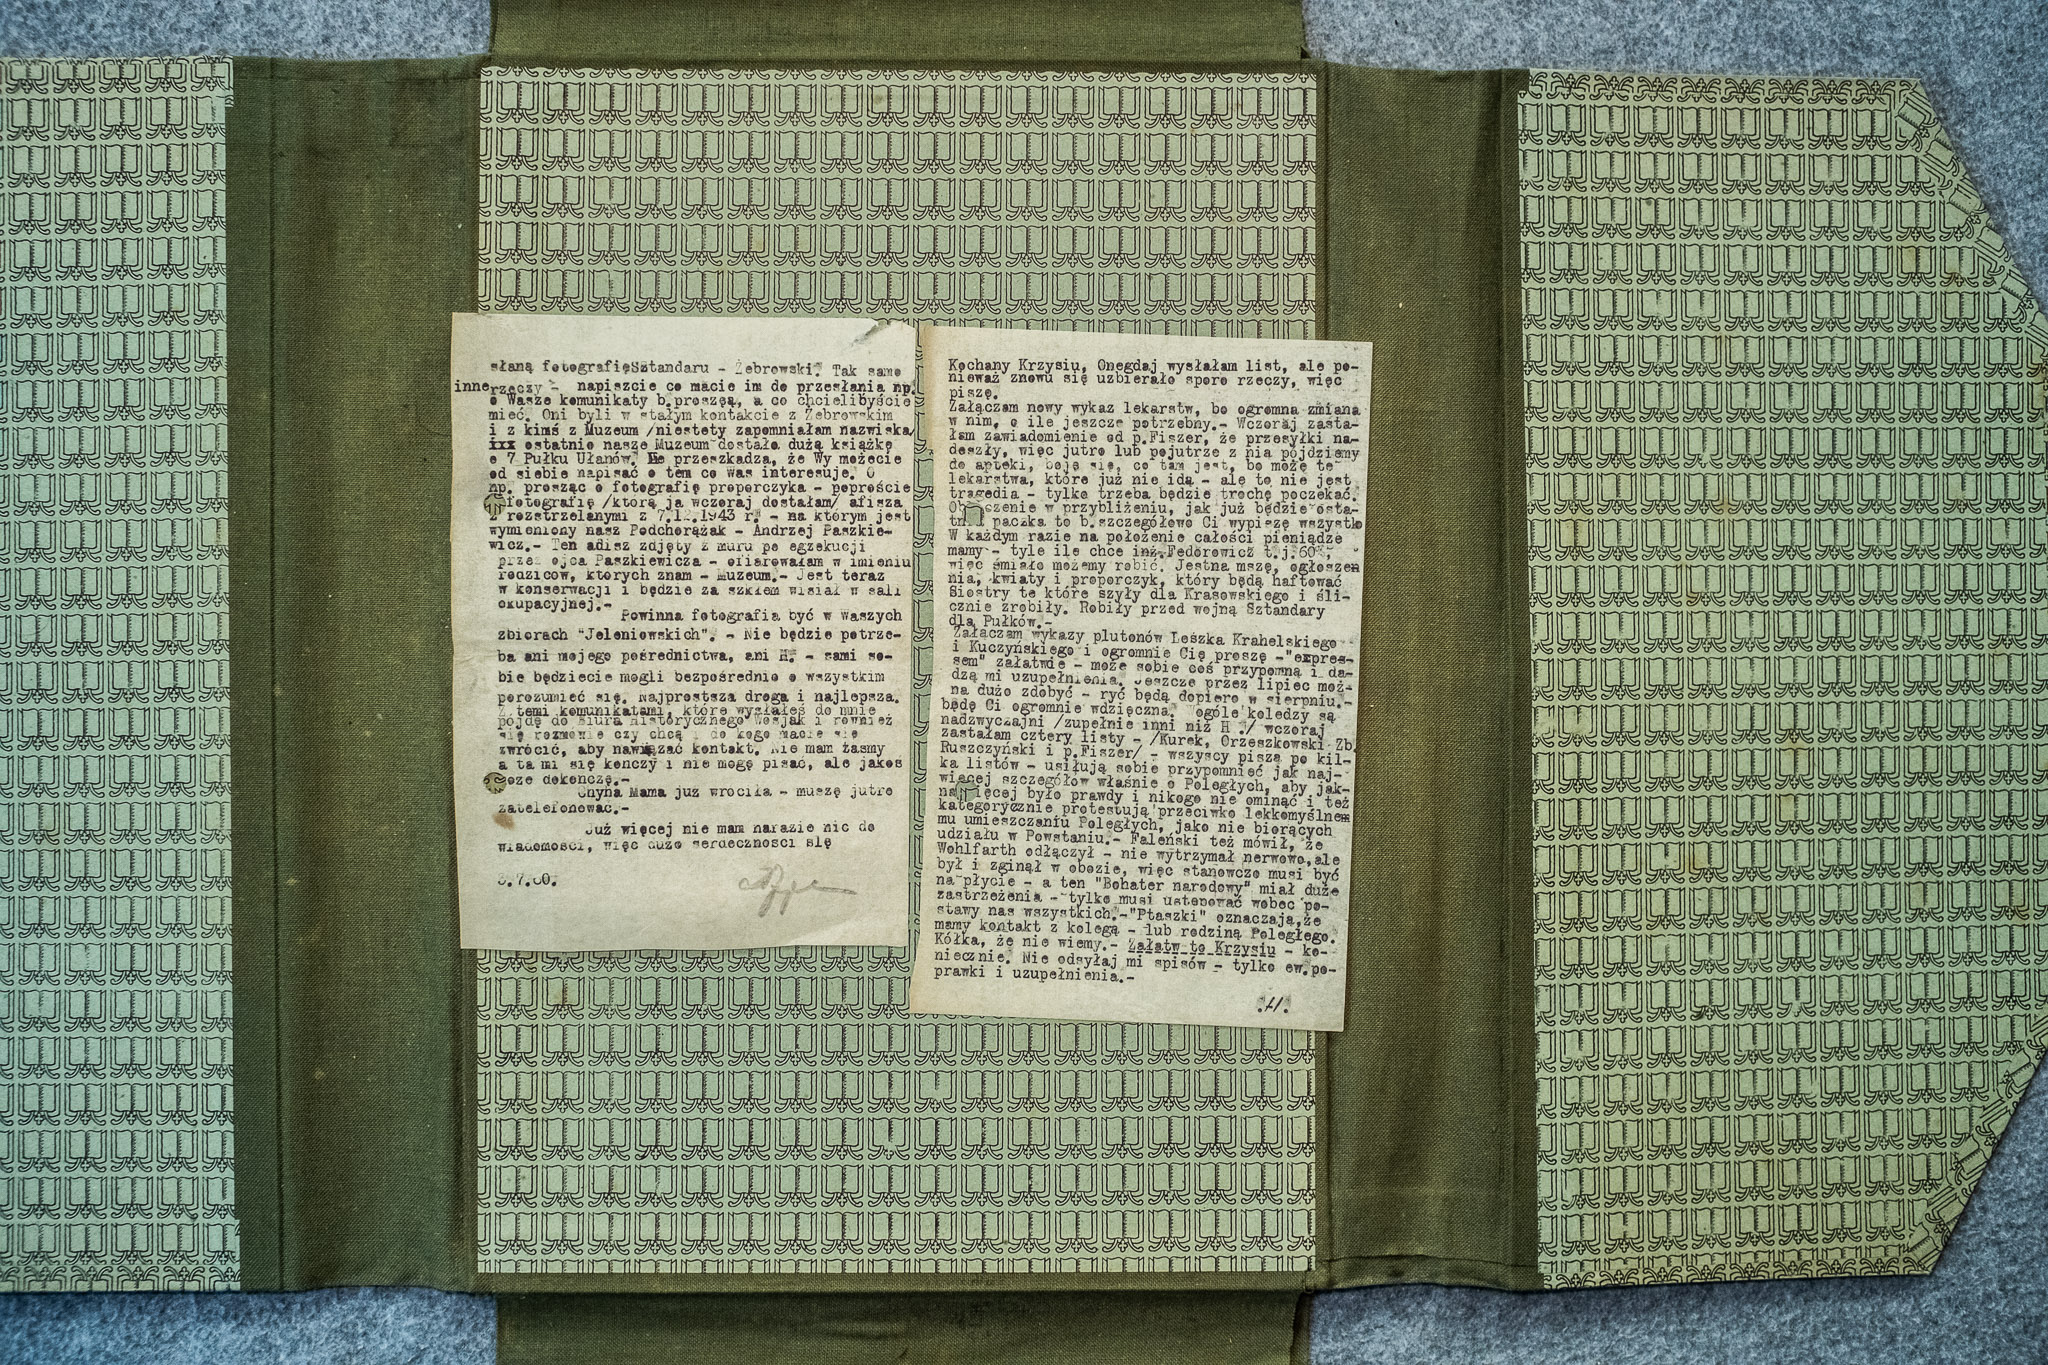 słaną fotografięSztandaru - Żebrowski. Tak samo
inne rzeczy - napiszcie co macie im do przesłania np.
o Wasze komunikaty b.proszęą, a co chcielibyście
mieć. Oni byli w stałym kontakcie z Żebrowskim
i z kimś z Muzeum /niestety zapomniałam nazwiska/
ixx ostatnio nasze Muzeum dostało dużą książkę
o 7 Pułku Ułanów. Nie przeszkadza, że Wy możecie
od siebie napisać o tem co Was interesuje. O
np. prosząc o fotografię proporczyka - poproście
fotografię /którą ja wczoraj dostałam/ afisza
z rozstrzelanymi z 7.12.1943 r. - na którym jest
wymieniony nasz Podchorążak - Andrzej Paszkie-
wicz.- Ten adisz zdjęty z muru po egzekucji
przez ojca Paszkiewicza - ofiarowałam w imieniu
rodziców, których znam - Muzeum.- Jest teraz
w konserwacji i będzie za szkłem wisiał w sali
okupacyjnej.-
Powinna fotografia być w Waszych
zbiorach "Jeleniowskich". - Nie będzie potrze-
ba ani mojego pośrednictwa, ani H. - sami so-
bie będziecie mogli bezpośrednio o wszystkim
porozumieć się. Najprostsza droga i najlepsza.
Z temi komunikatami, które wysłałeś do mnie
pójdę do Biura Historycznego Wojsk i również
się rozmówię czy chcą i do kogo macie się
zwrócić, aby nawiązać kontakt. Nie mam taśmy
a ta mi się kończy i nie mogę pisać, ale jakoś
może dokończę.-
Chyba Mama już wróciła - muszę jutro
zatelefonować.-
Już więcej nie mam narazie nic do
wiadomości, więc dużo serdeczności ślę
.7. 0.
Kochany Krzysiu, Onegdaj wysłałam list, ale po-
nieważ znowu się uzbierało sporo rzeczy, więc
piszę.
Załączam nowy wykaz lekarstw, bo ogromna zmiana
w nim, o ile jeszcze potrzebny.- Wczoraj zasta-
łam zawiadomienie od p.Fiszer, że przesyłki na-
deszły, więc jutro lub pojutrze z nią pójdziemy
do apteki, boję się, co tam jest, bo może te
lekarstwa, które już nie idą - ale to nie jest
tragedia - tylko trzeba będzie trochę poczekać.
Ob czenie w przybliżeniu, jak już będzie osta-
tnia paczka to b.szczegółowo Ci wypiszę wszystko
W każdym razie na położenie całości pieniądze
mamy - tyle ile chce inż.Fedorowicz t.j.60
więc śmiało możemy robić. Jestna mszę, ogłoszen
nia, kwiaty i proporczyk, który będą haftować
Siostry te które szyły dla Krasowskiego i śli-
cznie zrobiły. Robiły przed wojną Sztandary
dla Pułków.-
Załączam wykazy plutonów Leszka Krahelskiego
i Kuczyńskiego i ogromnie Cię proszę -"expres-
sem" załatwie - może sobie coś przypomną i da-
dzą mi uzupełnienia. Jeszcze przez lipiec moż-
na dużo zdobyć - ryć będą dopiero w sierpniu.-
będę Ci ogromnie wdzięczna. Wogóle koledzy są
nadzwyczajni /zupełnie inni niż H ./ wczoraj
zastałam cztery listy - /Kurek, Orzeszkowski Zb.
Ruszczyński i p.Fiszer/ - wszyscy piszą po kil-
ka listów - usiłują sobie przypomnieć jak naj-
więcej szczegółów właśnie o Poległych, aby jak-
najwięcej było prawdy i nikogo nie ominąć i też
kategorycznie protestują przeciwko lekkomyślnem
mu umieszczaniu Poległych, jako nie biorących
udziału w Powstaniu.- Faleński też mówił, że
Wohlfarth odłączył - nie wytrzymał nerwowo,ale
był i zginął w obozie, więc stanowczo musi być
na płycie - a ten "Bohater narodowy" miał duże
zastrzeżenia - tylko musi ustępować wobec po-
stawy nas wszystkich.-"Ptaszki" oznaczają,że
mamy kontakt z kolegą - lub rodziną Poległego.
Kółka, że nie wiemy.- Załatw to Krzysiu - ko-
niecznie. Nie odsyłaj mi spisów - tylko ew.po-
prawki i uzupełnienia.-